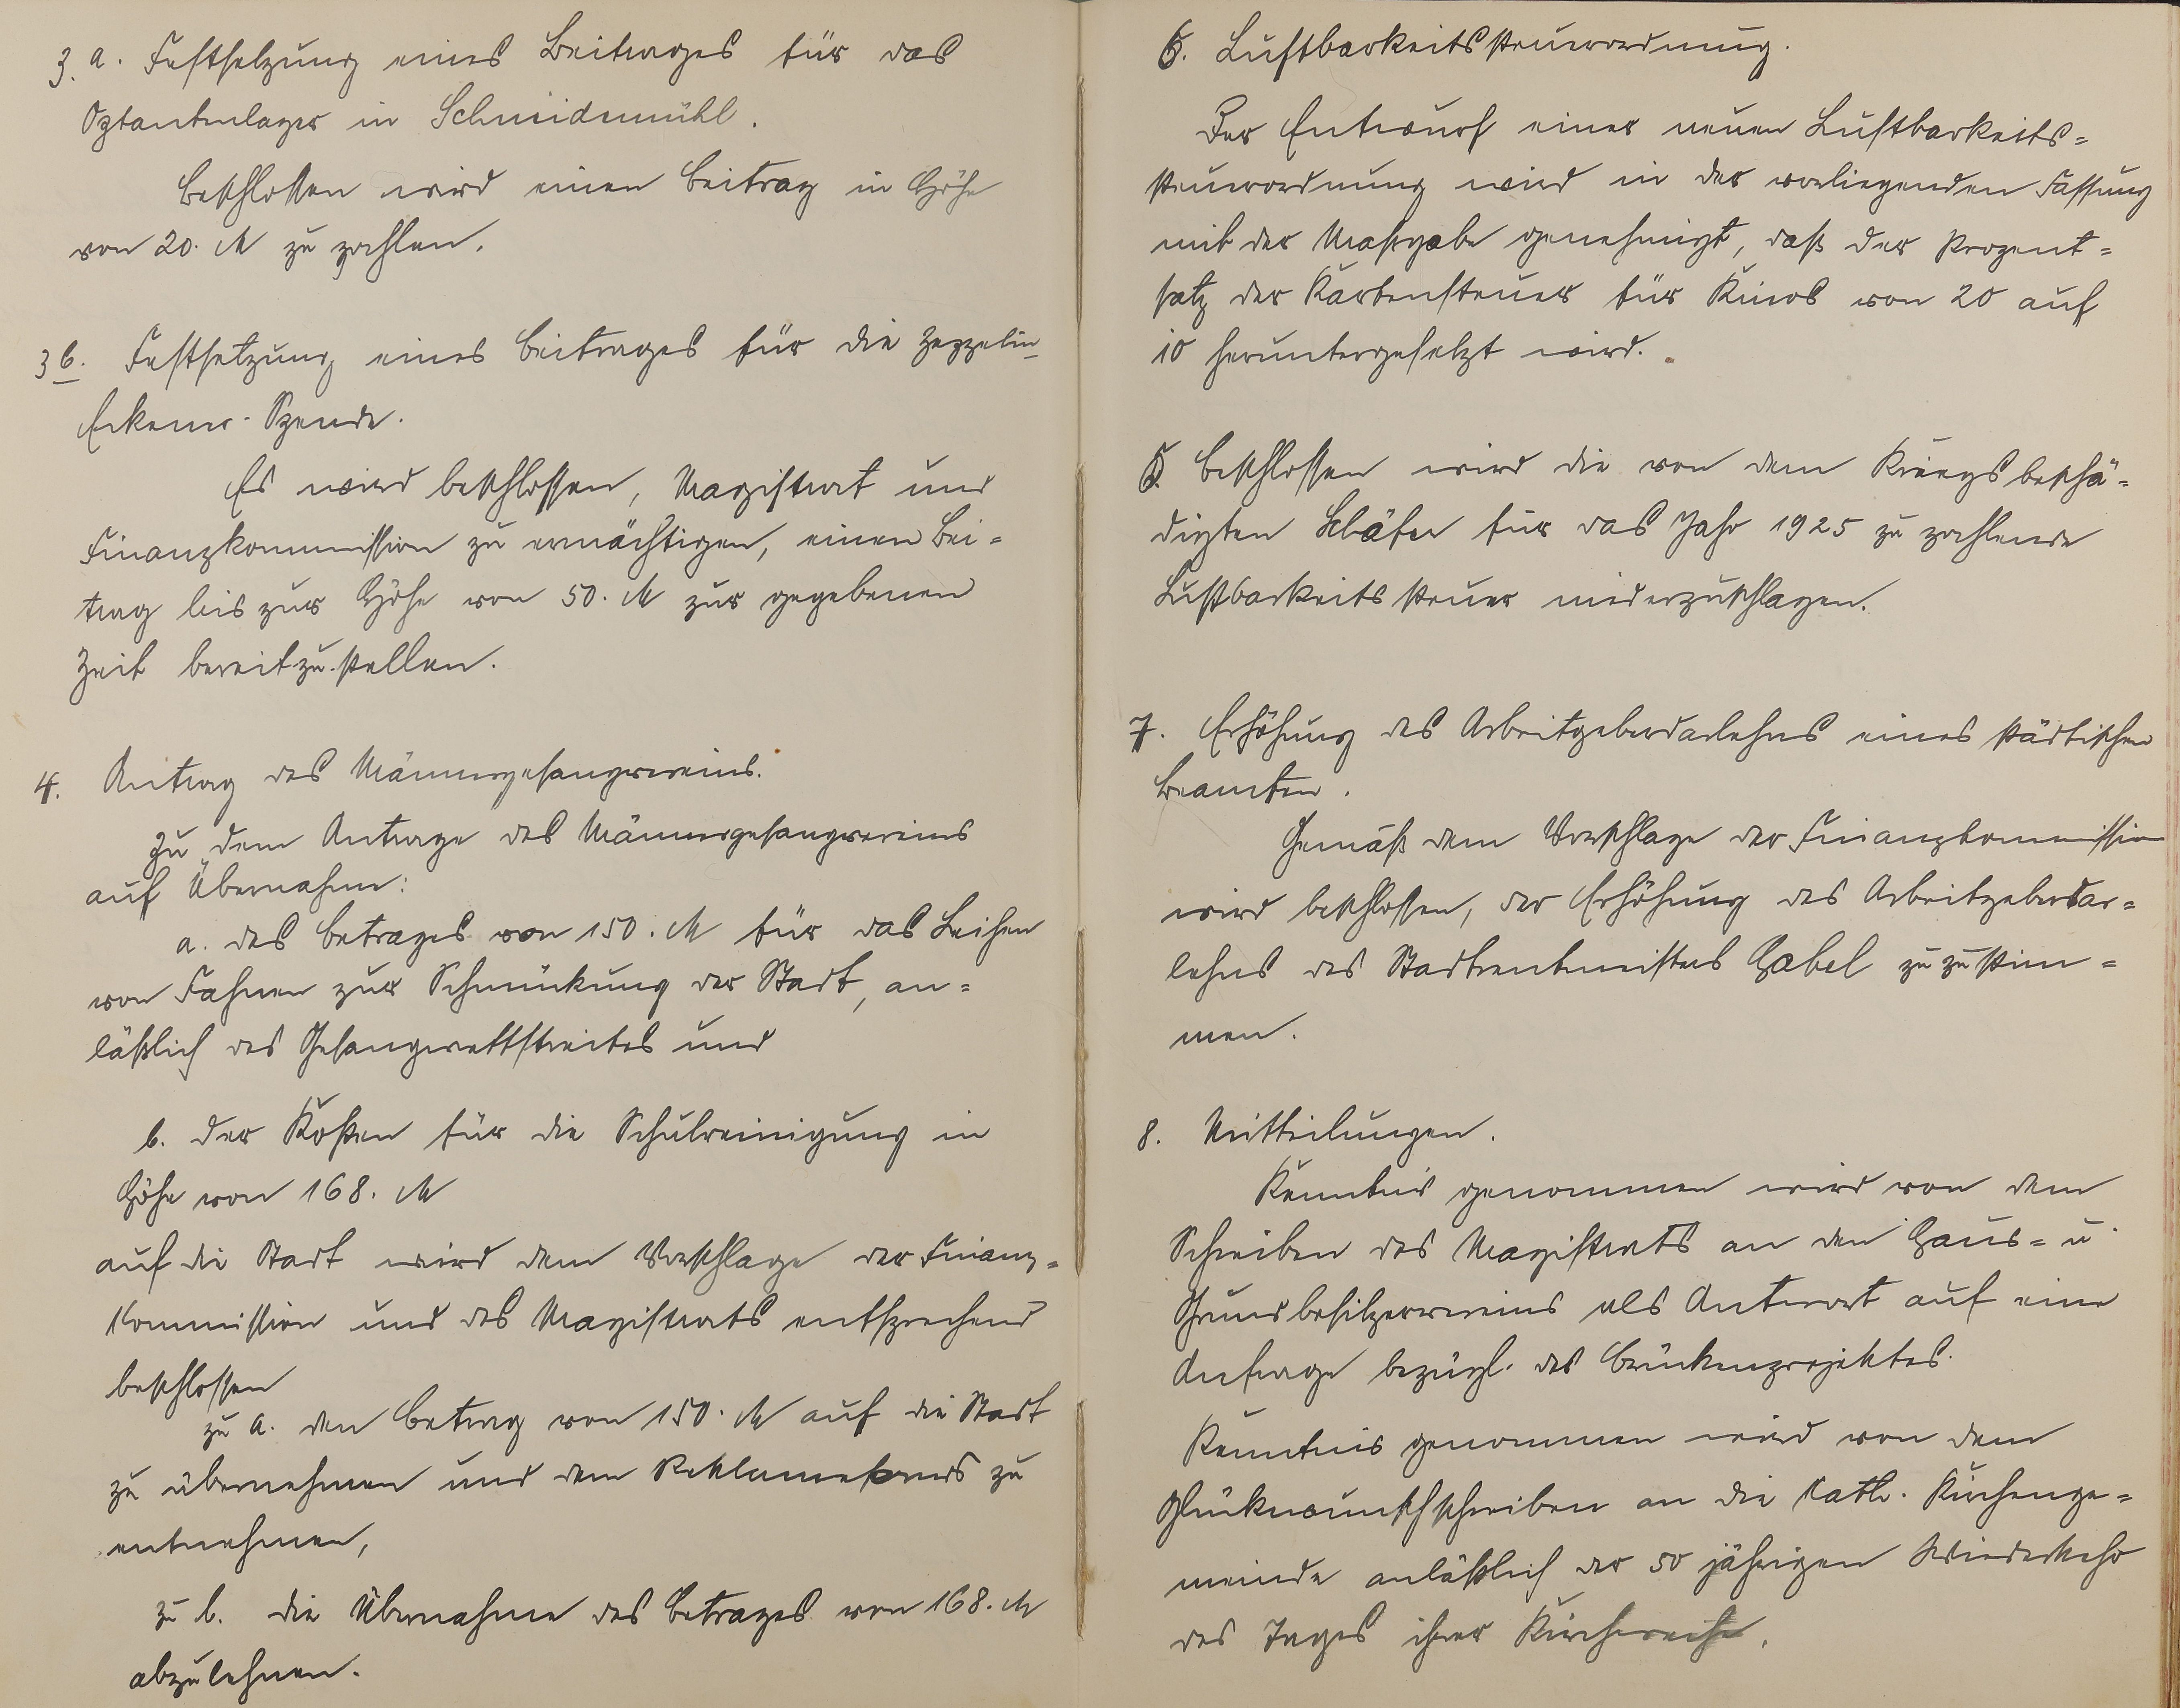 3. a. Festsetzung eines Beitrages für das
Optantenlager in Schneidemühl.
Beschlossen wird einen Beitrag in Höhe
von 20. M zu zahlen.
3 b. Festsetzung eines Beitrages für die Zeppelin-
Eckener-Spende.
Es wird beschlossen, Magistrat und
Finanzkommission zu ermächtigen, einen Bei=
trag bis zur Höhe von 50. M zur gegebenen
Zeit bereitzustellen.
4. Antrag des Männergesangvereins.
Zu dem Antrage des Männergesangvereins
auf Übernahme:
a. des Betrages von 150. M für das Leihen
von Fahnen zur Schmückung der Stadt, an=
läßlich des Gesangwettstreites und
b. der Kosten für die Schulreinigung in
Höhe von 168. M
auf die Stadt wird dem Vorschlage der Finanz=
kommission und des Magistrats entsprechend
beschlossen
zu a. den Betrag von 150. M auf die Stadt
zu übernehmen und dem Reklamefonds zu
entnehmen,
zu b. die Übernahme des Betrages von 168. M
abzulehnen.
5. Lustbarkeitssteuerordnung.
Der Entwurf einer neuen Lustbarkeits=
steuerordnung wird in der vorliegenden Fassung
mit der Maßgabe genehmigt, daß der Prozent=
satz der Kartensteuer für Kinos von 20 auf
10 heruntergesetzt wird.
6. Beschlossen wird die von dem Kriegsbeschä=
digten Schäfer für das Jahr 1925 zu zahlende
Lustbarkeitssteuer niederzuschlagen.
7. Erhöhung des Arbeitgeberdarlehns eines städtischen
Beamten.
Gemäß dem Vorschlage der Finanzkommission
wird beschlossen, der Erhöhung des Arbeitgeberdar=
lehns des Stadtrentmeisters Habel zuzustim=
men.
8. Mitteilungen.
Kenntnis genommen wird von dem
Schreiben des Magistrats an den Haus= u
Grundbesitzervereins als Antwort auf eine
Anfrage bezügl. des Brückenprojektes.
Kenntnis genommen wird von dem
Glückwunschschreiben an die kath. Kirchenge=
meinde anläßlich der 50 jährigen Wiederkehr
des Tages ihrer Kirchweihe.